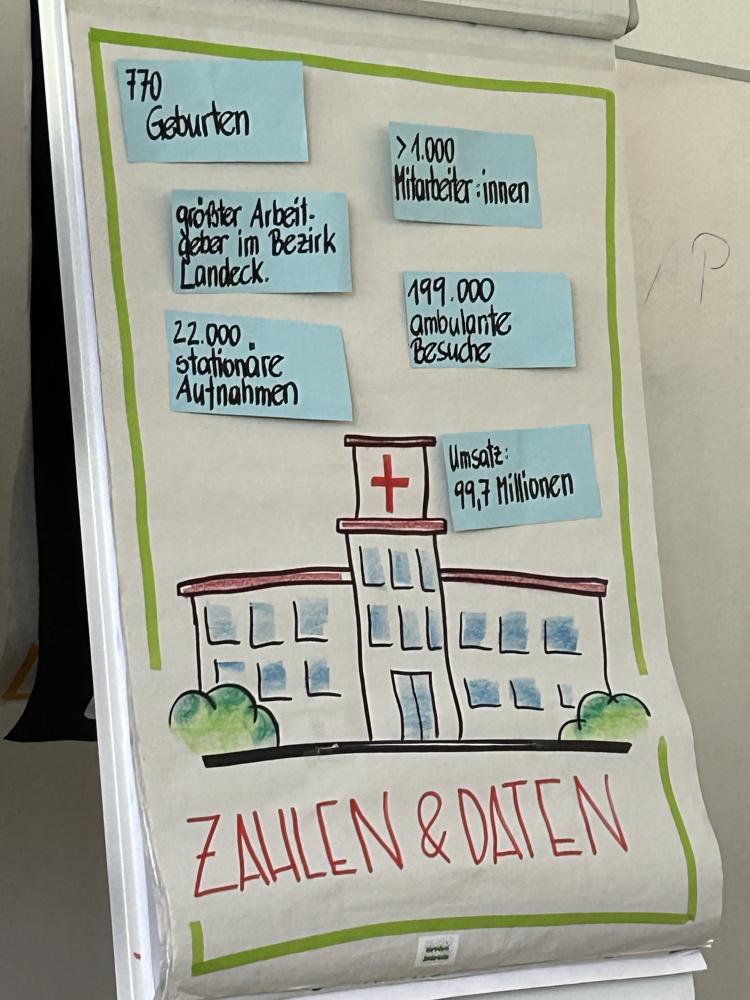 770
Geburten
>1.000
Mitarbeiter:innen
größter Arbeit-
geber im Bezirk
Landeck.
199.000
ambulante
Besuche
22.000
stationäre
Aufnahmen
Umsatz:
99,7 Millionen
ZAHLEN & DATEN
P